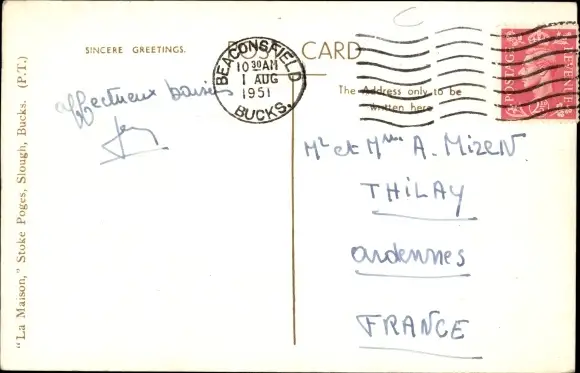 SINCERE GREETINGS.
POST CARD
BEACONSFIELD
10 30 AM
1 AUG
1951
BUCKS.
POSTAGE REVENUE
The Address only to be
written here
affectueux baisers
Mr et Mme A. Mizen
THILAY
ardennes
FRANCE
"La Maison," Stoke Poges, Slough, Bucks. (P.T.)